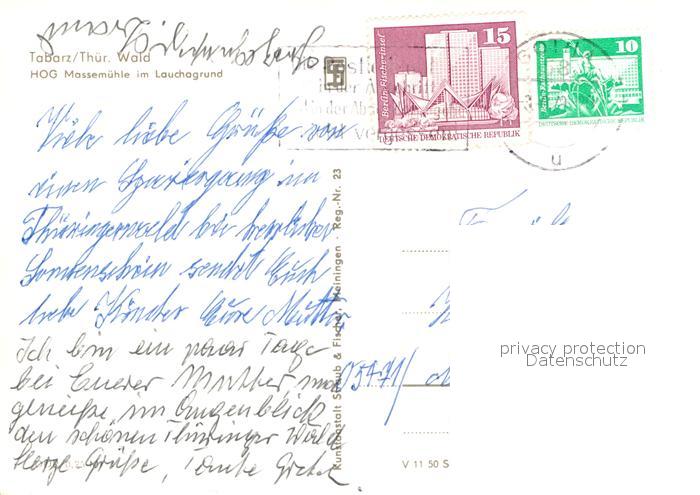 Tabarz/Thür. Wald
HOG Massemühle im Lauchagrund
15
Berlin-Fischerinsel
DEUTSCHE DEMOKRATISCHE REPUBLIK
10
Berlin-Rathausstraße
DEUTSCHE DEMOKRATISCHE REPUBLIK
Viele liebe Grüße von
einem Spaziergang im
Thüringerwald bei herrlichem
Sonnenschein sendet Euch
liebe Kinder Eure Mutter
Ich bin ein paar Tage
bei Euerer Mutter, und
genieße im Augenblick
den schönen Thüringer Wald
Herzl. Grüße, Tante Gretel
Kunstanstalt Straub & Fischer, Meiningen · Reg.-Nr. 23
V 11 50 S
privacy protection
Datenschutz